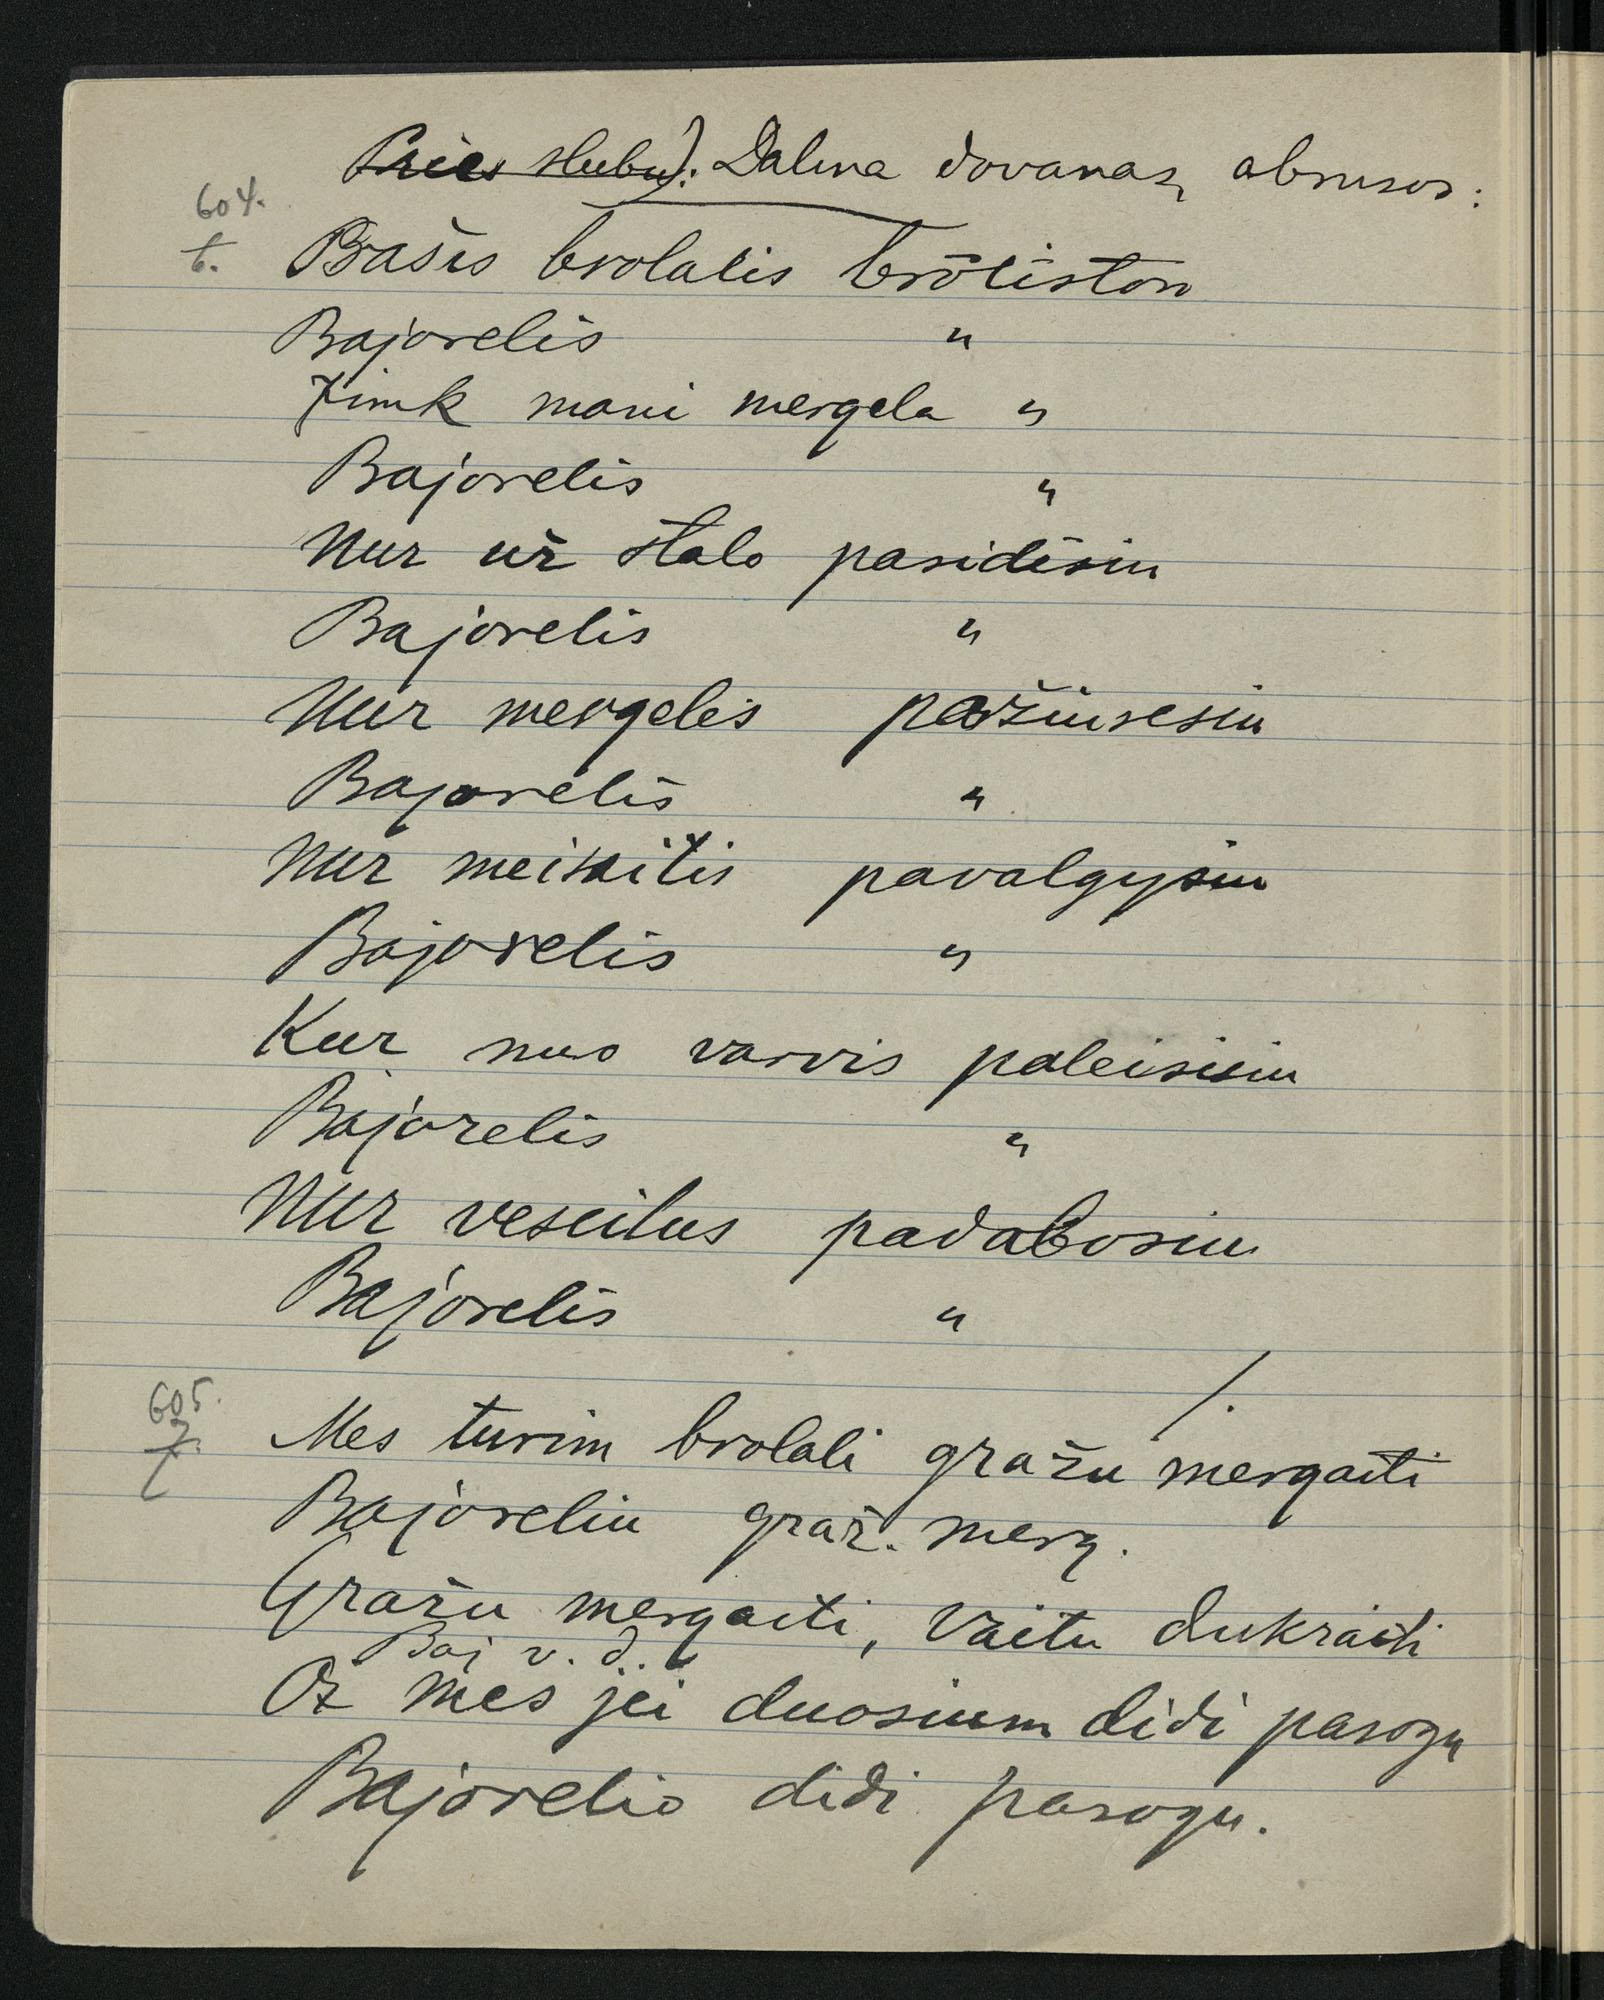 Prieš sliubų): Dalina dovanas, abrusos:
604.
6. Brašės brolalis brōlistan
Bajorelis "
Jimk mani mergela "
Bajorelis "
Nur už stalo pasidėsiu
Bajorelis "
Nur mergelės pažiuresiu
Bajorelis "
Nur meisitis pavalgysiu
Bajorelis "
Kur nuo varvis paleisiu
Bajorelis "
Nur veseilus padabosiu
Bajorelis "
605.
7. Mes turim brolali gražu mergaiti
Bajoreliu graž. merg.
Gražu mergaiti, Vaitu dukraiti
Baj v. d.
Oz mes jei duosium didi pasogu
Bajorelio didi pasogu.